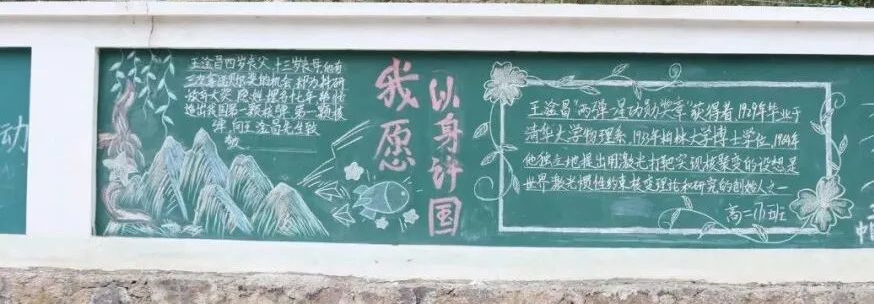 动
王淦昌四岁丧父,十三岁丧母,他有
三次拿诺贝尔奖的机会,却为科研
隐姓埋名十七年
造出我国第一颗 第一颗核
弹,向王淦昌先生致
敬
我愿
以身许国
王淦昌"两弹一星功勋奖章"获得者,1929年毕业于
清华大学物理系,1933年柏林大学博士学位,1964年
他独立地提出用激光打靶实现核聚变的设想是
世界激光惯性约束核变理论和研究的创始人之一
高二(7)班
中